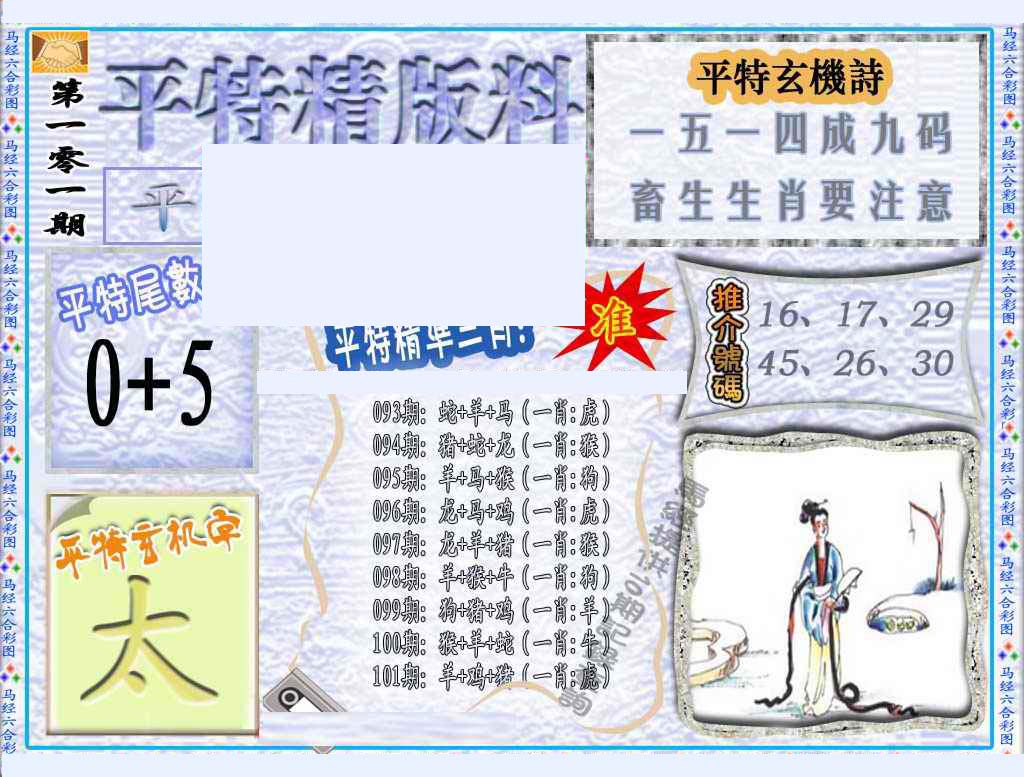 第一零一期
平特精版料
平
平特玄機詩
一五一四成九码
畜生生肖要注意
平特尾數
0+5
平特精準一肖:
准
推介號碼
16、17、29
45、26、30
093期: 蛇+羊+马 (一肖:虎)
094期: 猪+蛇+龙 (一肖:猴)
095期: 羊+马+猴 (一肖:狗)
096期: 龙+马+鸡 (一肖:虎)
097期: 龙+羊+猪 (一肖:猴)
098期: 羊+猴+牛 (一肖:狗)
099期: 狗+猪+鸡 (一肖:羊)
100期: 猴+羊+蛇 (一肖:牛)
101期: 羊+鸡+猪 (一肖:虎)
平特玄机字
太
马经六合彩图
马经六合彩图
马经六合彩图
马经六合彩图
马经六合彩图
马经六合彩图
马经六合彩
马经六合彩图
马经六合彩图
马经六合彩图
马经六合彩图
马经六合彩图
马经六合彩图
马经六合彩图